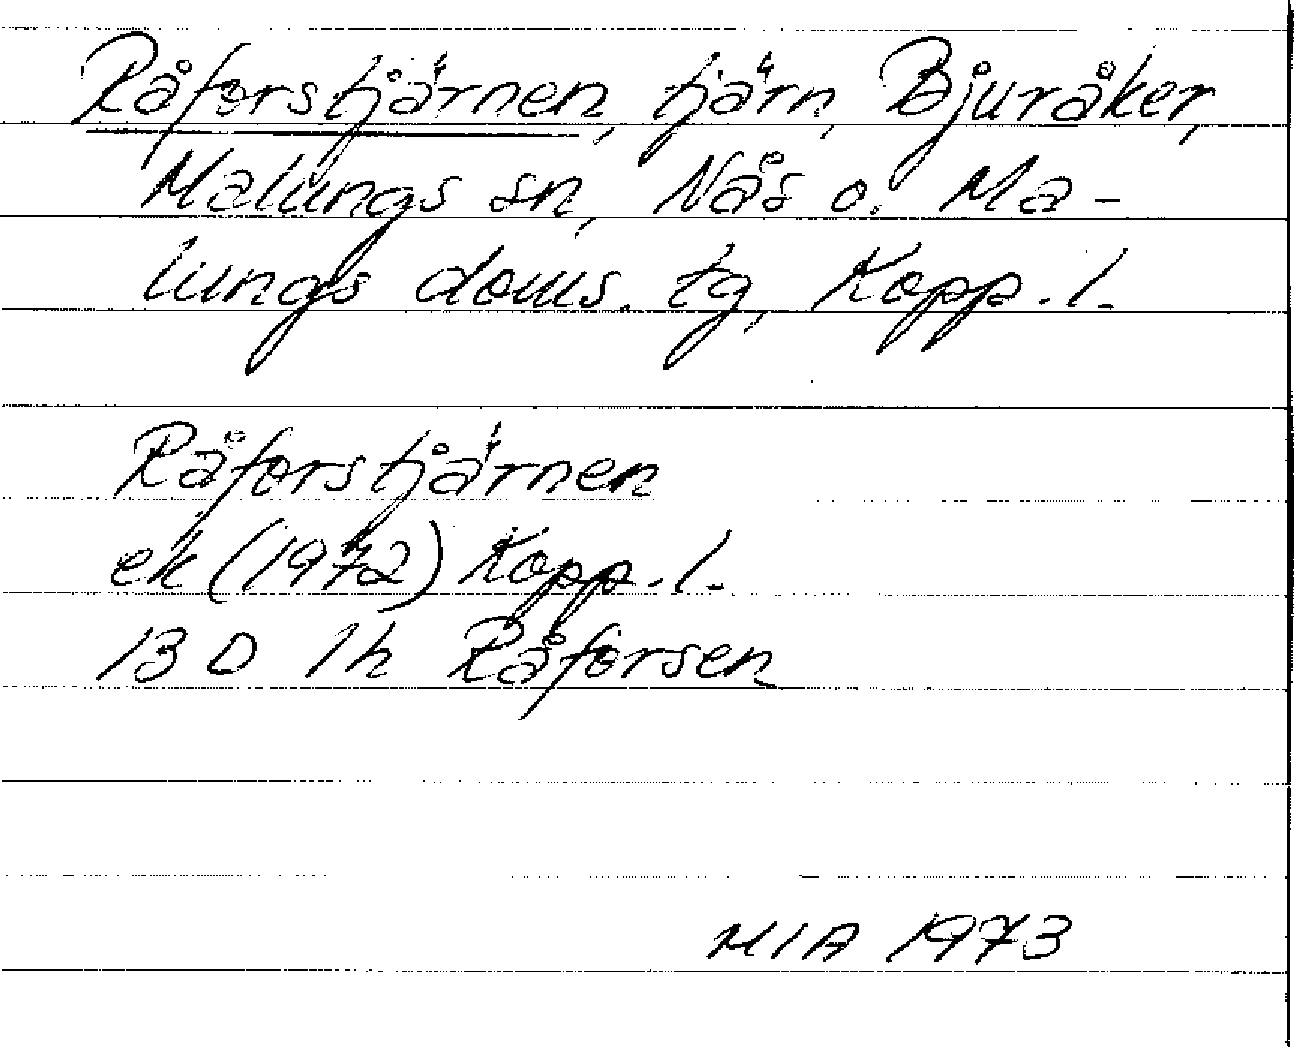 Råforstjärnen, tjärn, Bjuråker,
Malungs sn, Nås o. Ma-
lungs doms. tg, Kopp. l.
Råforstjärnen
ek (1972) Kopp. l.
13 D 1h Råforsen
MIA 1973